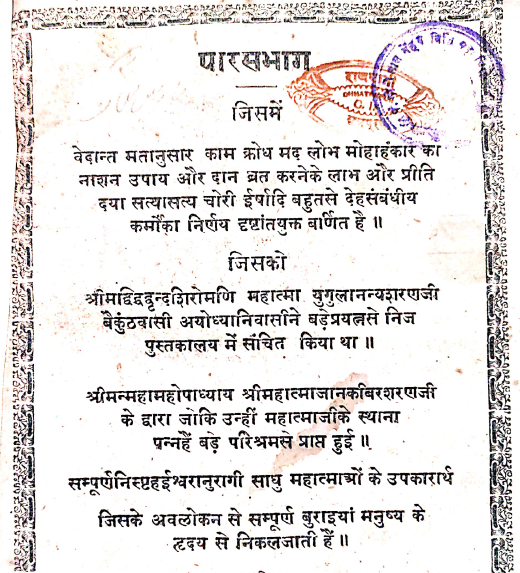 पारसभाग
जिसमें
वेदान्त मतानुसार काम क्रोध मद लोभ मोहाहंकार का
नाशन उपाय और दान व्रत करनेके लाभ और प्रीति
दया सत्यासत्य चोरी ईर्षादि बहुतसे देहसंबंधीय
कर्मोंका निर्णय दृष्टांतयुक्त बर्णित है ॥
जिसको
श्रीमद्विद्वद्वृन्दशिरोमणि महात्मा युगुलानन्यशरणजी
बैकुंठवासी अयोध्यानिवासीने बड़ेप्रयत्नसे निज
पुस्तकालय में संचित किया था ॥
श्रीमन्महामहोपाध्याय श्रीमहात्माजानकीबरशरणजी
के द्वारा जोकि उन्हीं महात्माजीके स्थाना
पन्नहैं बड़े परिश्रमसे प्राप्त हुई ॥
सम्पूर्णनिस्पृहईश्वरानुरागी साधु महात्माओं के उपकारार्थ
जिसके अवलोकन से सम्पूर्ण बुराइयां मनुष्य के
हृदय से निकलजाती हैं ॥